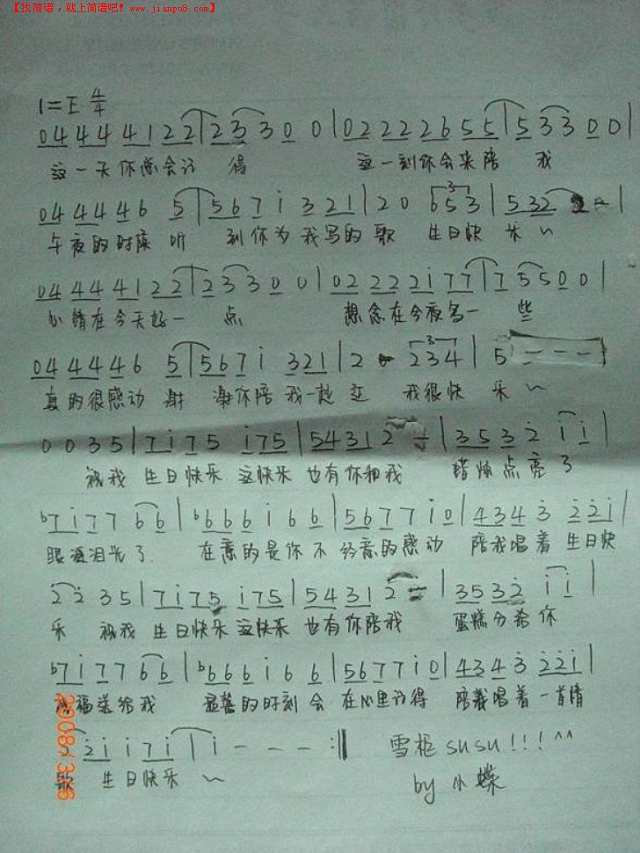 【找简谱，就上简谱吧！www.jianpu8.com】
1=E 4/4
04 44 41 22 | 23 30 0 | 02 22 26 55 | 53 30 0 |
这一天你总会记 得 这一刻你会来陪 我
04 4446 5 | 567i 321 | 20 653 | 532 - |
午夜的时候 听 到你为我写的歌 生日快 乐~
04 44 41 22 | 23 30 0 | 02 22 2i 77 | 75 50 0 |
心情在今天好一 点 想念在今夜多一 些
04 4446 5 | 567i 321 | 2 - 234 | 5 - - - |
真的很感动 谢 谢你陪我一起 我很快 乐~
0035 | 7i75 i75 | 5431 2 - | 3532 ii |
祝我 生日快乐 这快乐 也有你和我 蜡烛点亮了
b7i77 66 | b666i66 | 5677i0 | 4343 22i |
眼泪泪光了 在意的是你不 的感动 陪我唱着 生日快
2235 | 7i75 i75 | 5431 2 - | 3532 ii |
乐 祝我 生日快乐 这快乐 也有你陪我 蛋糕分给你
b7i77 66 | b666i66 | 5677i0 | 4343 22i |
福送给我 的时刻会 在心里记得 陪我唱着一首情
2 2ii7i | i - - - :||
歌 生日快乐~
雪柜susu!!!^^
by 小蝶
2008 3 6